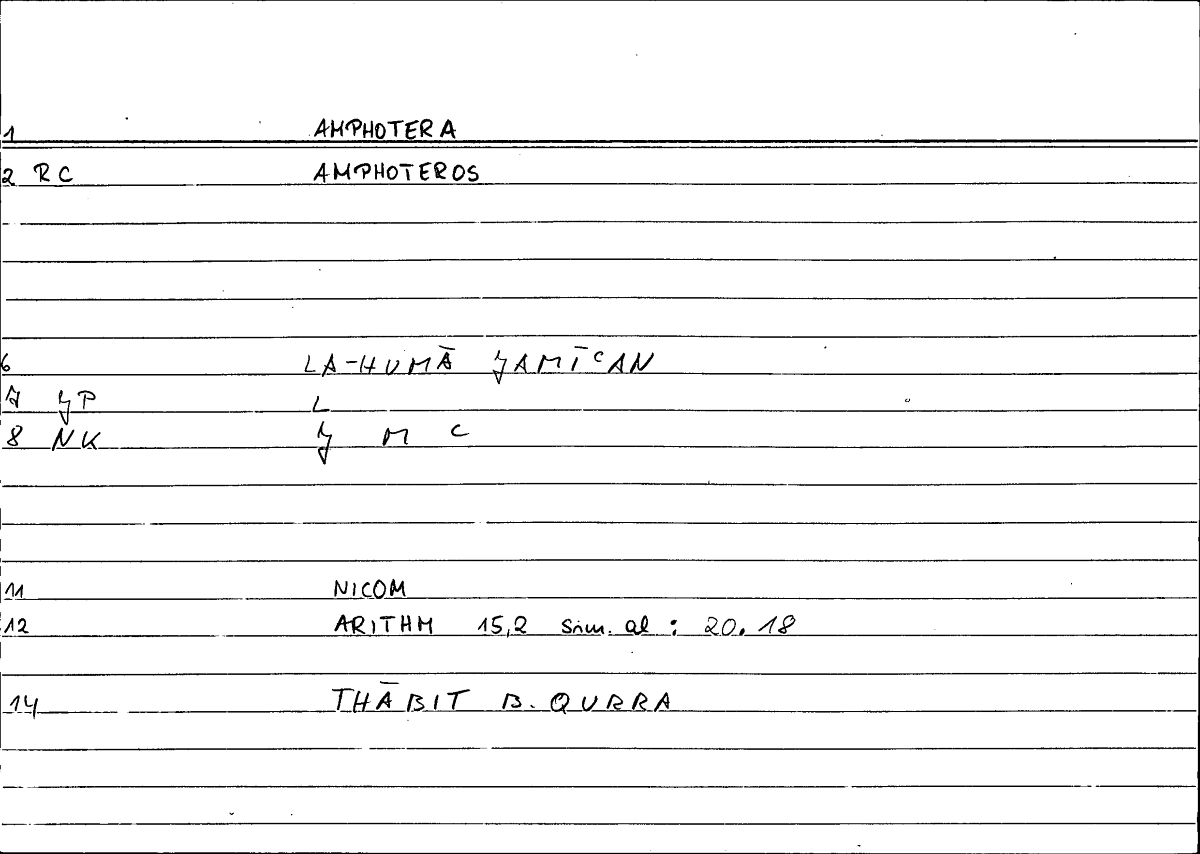 1 AMPHOTERA
2 RC AMPHOTEROS
6 LA-HUMĀ ǦAMĪᶜAN
7 ǦP L
8 NK Ǧ M C
11 NICOM
12 ARITHM 15,2 sim. al : 20.18
14 THĀBIT B. QURRA